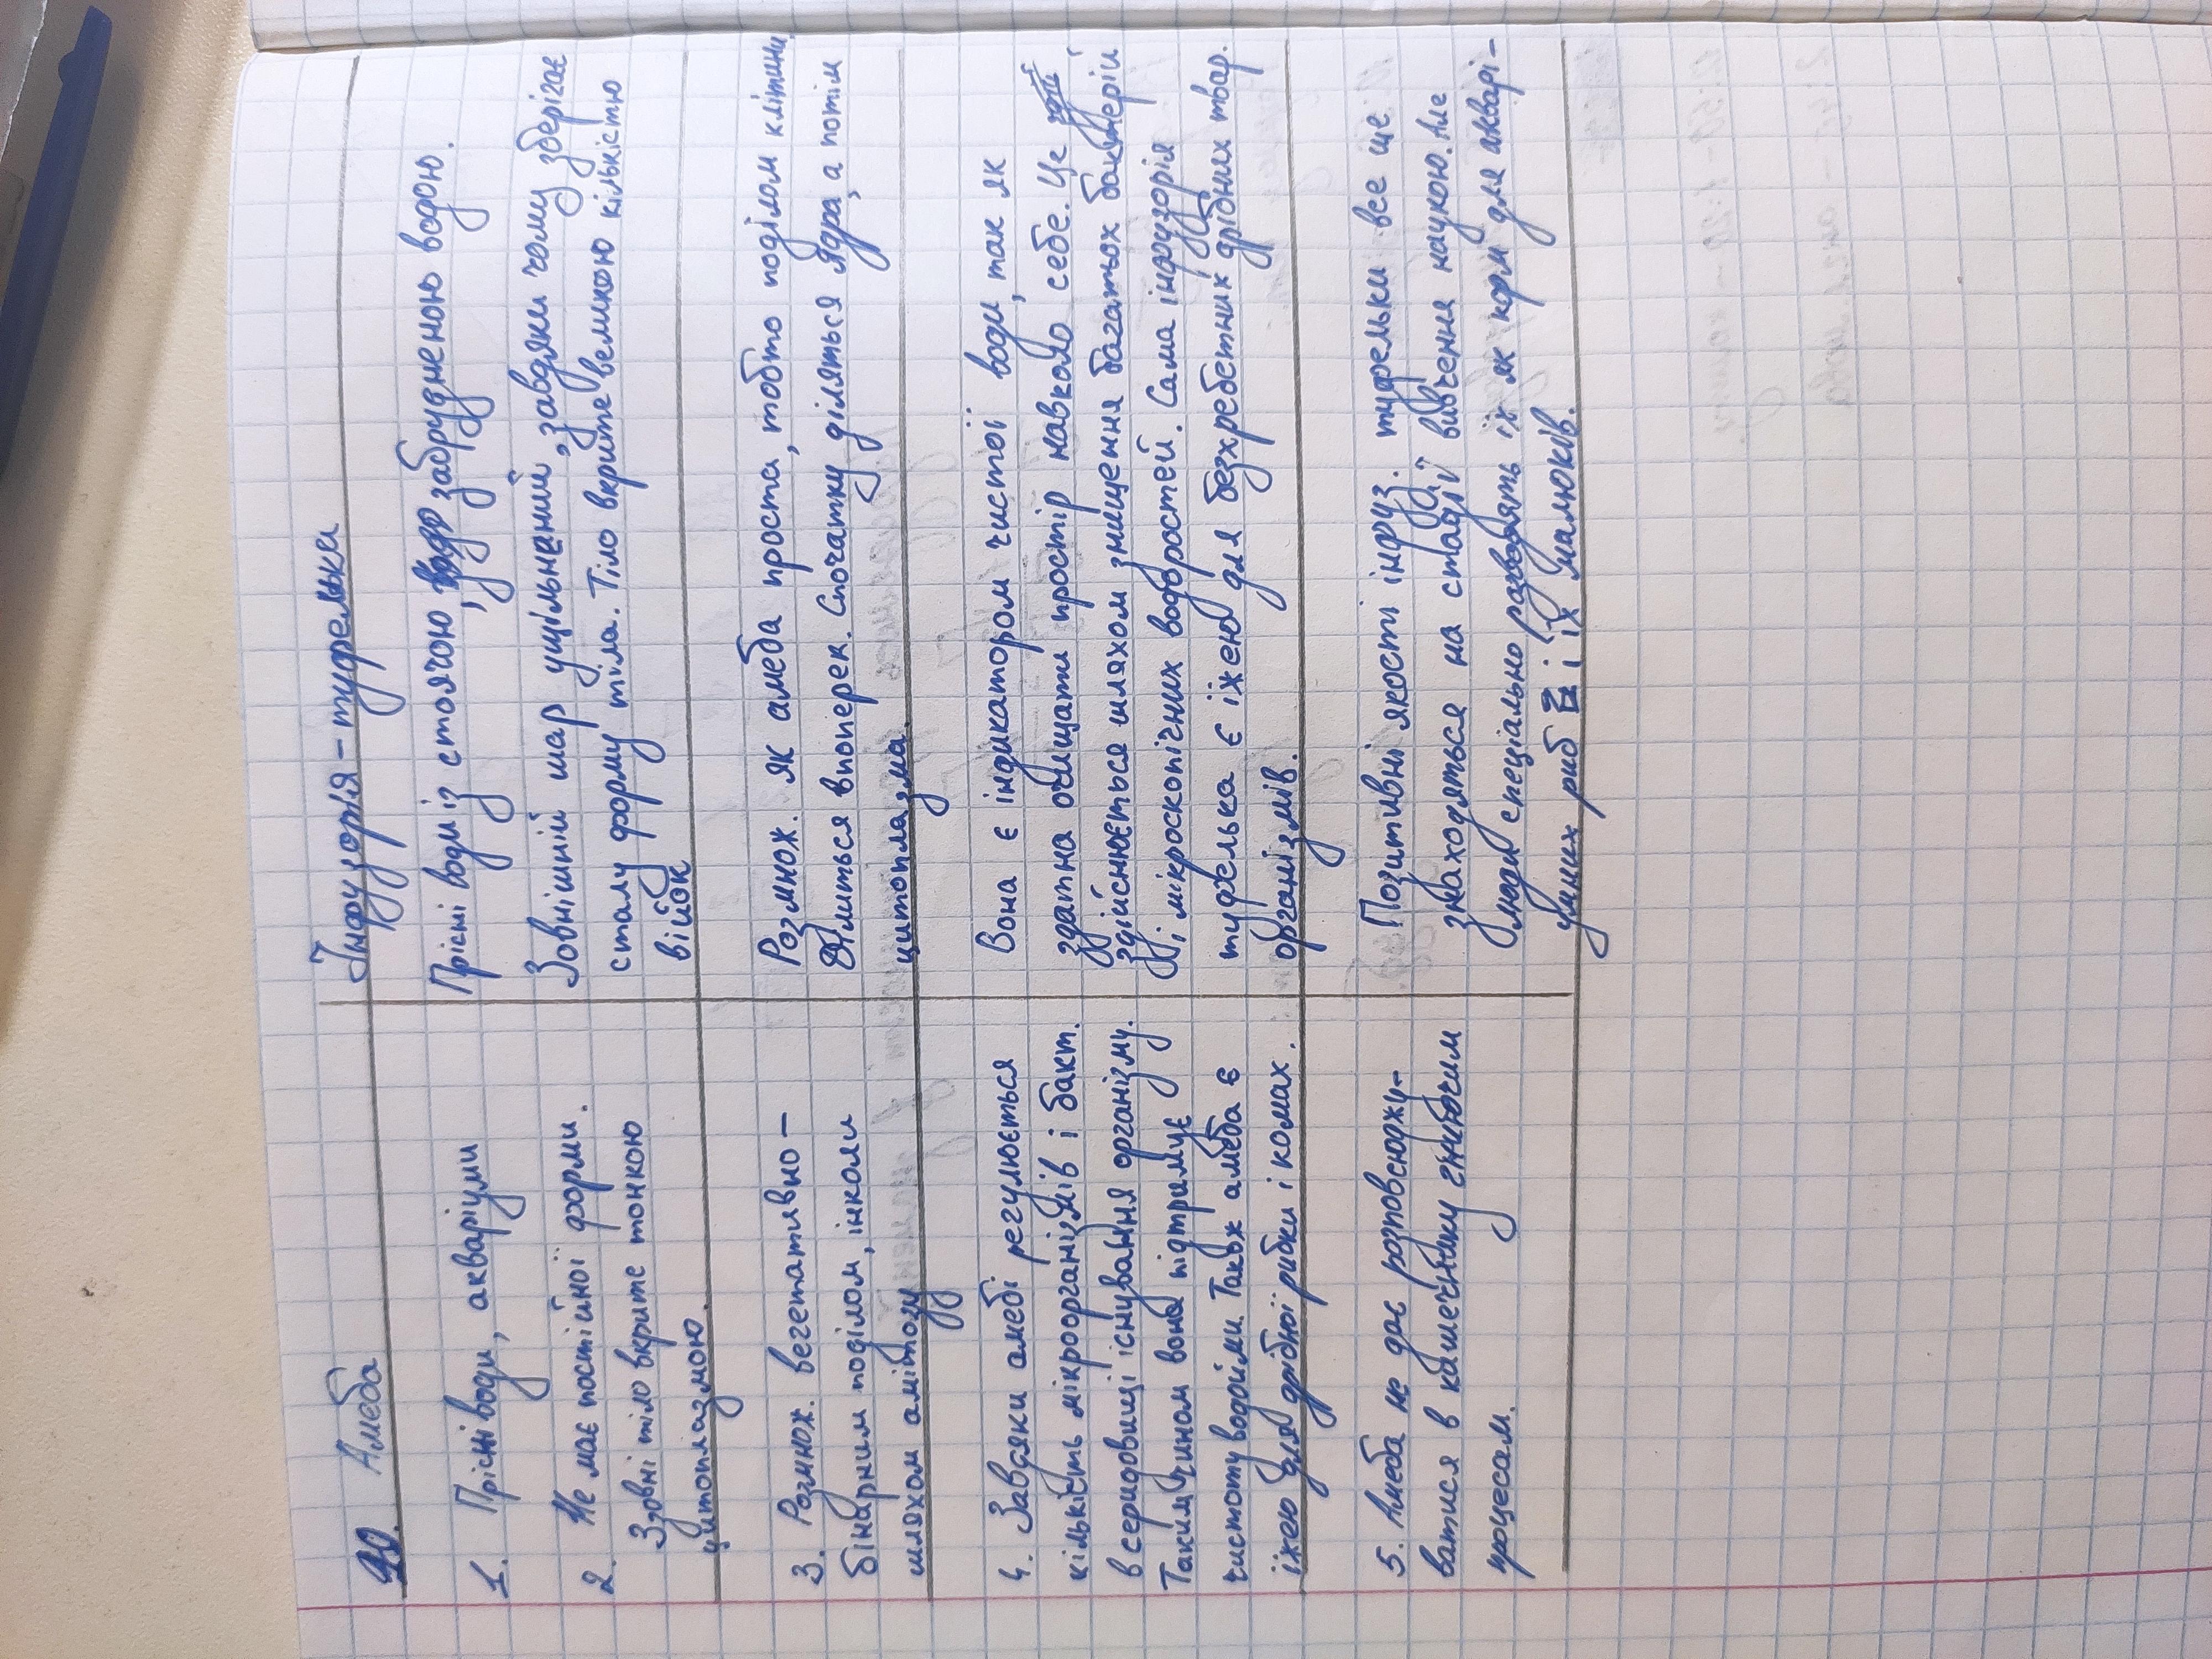 10. Амеба
1. Прісні води, акваріуми
2. Не має постійної форми.
Здовні тіло вкрите тонкою
цитоплазмою.
3. Розмнож. вегетативно –
бінарним поділом, інколи
шляхом амітозу
4. Завдяки амебі регулюється
кількість мікроорганізмів і бакт.
в серидовищі існування організму.
Таким чином вона підтримує
чистоту водойми. Також амеба є
їжею для дрібної рибки і комах.
5. Амеба не дає розповсюджу-
ватися в кишечнику гнибчим
процесам.
Інфузорія – туфелька
Прісні води із стоячою, забрудненою водою.
Зовнішній шар ущільнений, завдяки чому зберігає
сталу форму тіла. Тіло вкрите великою кількістю
війок
Розмнож. як амеба проста, тобто поділом клітини,
Ділиться впоперек. Спочатку діляться ядра, а потім
цитоплазма.
Вона є індикатором чистої води, так як
здатна очищати простір навколо себе. Це
здійснюється шляхом знищення багатьох бактерій
і мікроскопічних водоростей. Сама інфузорія
туфелька є їжею для безхребетних дрібних твар.
організмів.
Позитивні якості інфуз. туфельки все ще
знаходяться на стадії вивчення наукою. Але
люди спеціально розводять їх як корм для акварі-
умних риб і їх мальків.